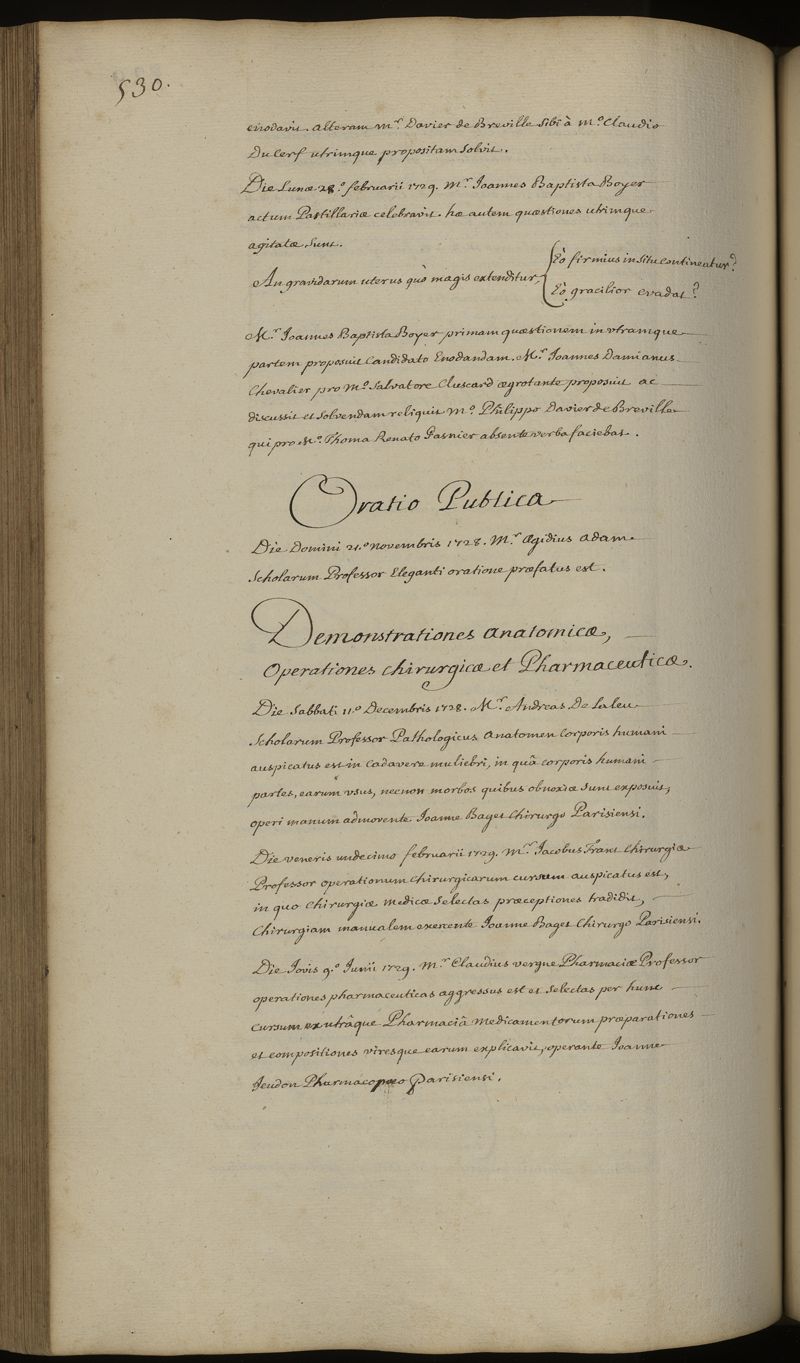 530.
enodavit. alteram m.r Davier de Breville sibi à m.o Claudio
Du Cerf utrimque propositam solvit.
Die Lunæ 28.o februarii 1729. M.r Joannes Baptista Boyer
actum Pastillariæ celebravit. hæ autem quæstiones utrimque
agitatæ sunt.
An gravidarum uterus quò magis extenditur, { Eò firmius in situ contineatur?
Eò gracilior evadat?
M.r Joannes Baptista Boyer primam quæstionem in utramque
partem proposuit Candidato Enodandam. M.r Joannes Damianus
Chevalier pro M.o Salvatore Cluscard ægrotante proposuit ac
discussit et solvendam reliquit M.o Philippo Davier de Breville
qui pro M.o Thoma Renato Gasnier absente verba faciebat.
Oratio Publica
Die Domini 21.o novembris 1728. M.r Ægidius adam
Scholarum Professor Eleganti oratione præfatus est.
Demonstrationes anatomicæ,
Operationes chirurgicæ et Pharmaceuticæ.
Die Sabbati 11.o Decembris 1728. M.r Andreas De Laleu
Scholarum Professor Pathologicus anatomen corporis humani
auspicatus est in cadavere muliebri, in quâ corporis humani
partes, earum usus, necnon morbos quibus obnoxiæ sunt exposuit,
operi manum admovente Joanne Baget Chirurgo Parisiensi.
Die veneris undecimo februarii 1729. M.r Jacobus Frans Chirurgiæ
Professor operationum chirurgicarum cursum auspicatus est,
in quo Chirurgiæ medicæ selectas præceptiones tradidit,
Chirurgiam manualem exercente Joanne Baget Chirurgo Parisiensi.
Die Jovis 9.o Junii 1729. M.r Claudius vergne Pharmaciæ Professor
operationes pharmaceuticas aggressus est et selectas per hunc
cursum ex utrâque Pharmaciâ medicamentorum præparationes
et compositiones viresque earum explicavit, operante Joanne
Jeudon Pharmacopæo Parisiensi.